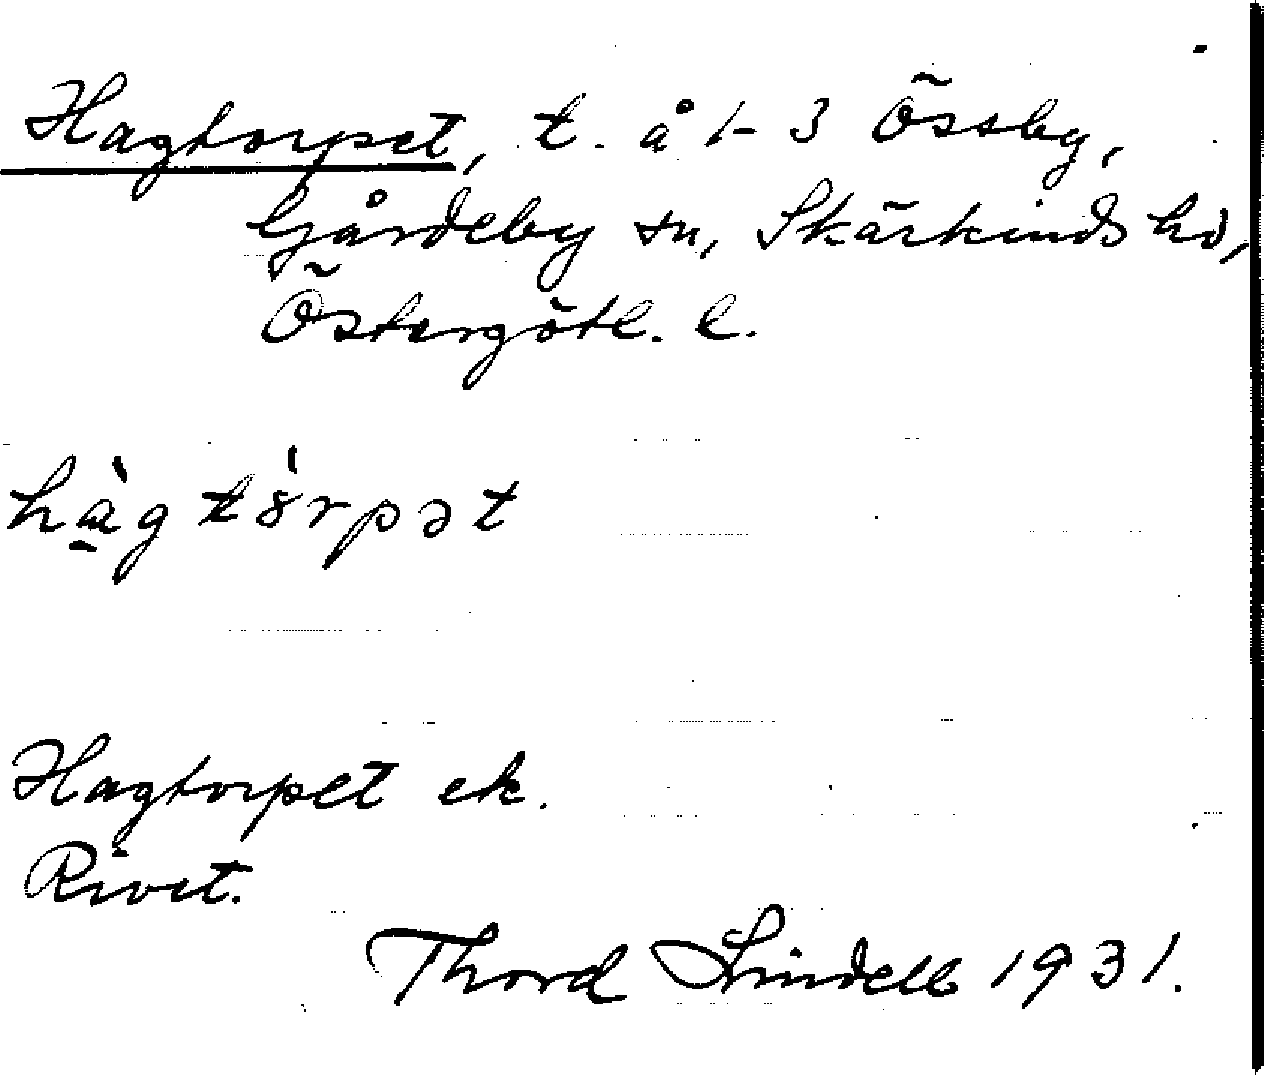 Hagtorpet, t. å 1-3 Össby,
Gårdeby sn, Skärkinds hd,
Östergötl. l.
hàgtȣ́rpət
Hagtorpet ek.
Rivet.
Thord Lindell 1931.